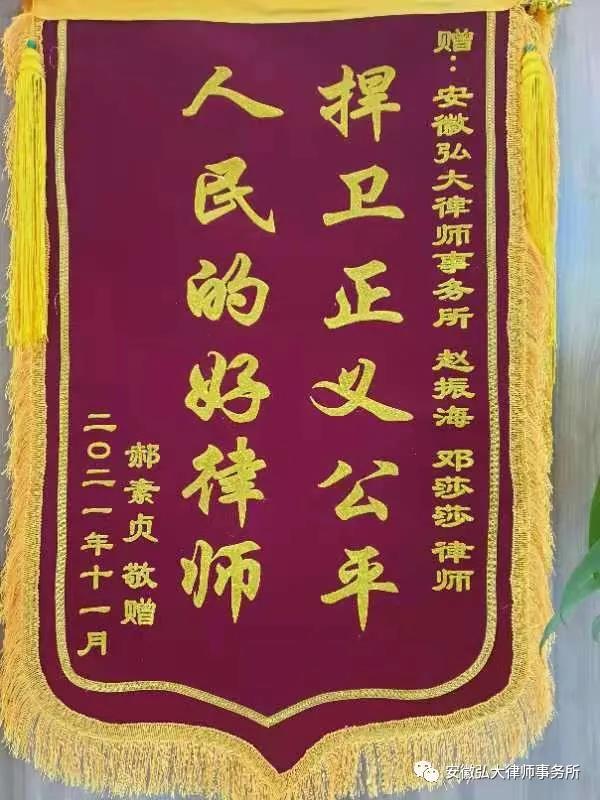 赠：安徽弘大律师事务所 赵振海 邓莎莎 律师
捍卫正义公平
人民的好律师
郝素贞 敬赠
二〇二一年十一月
安徽弘大律师事务所